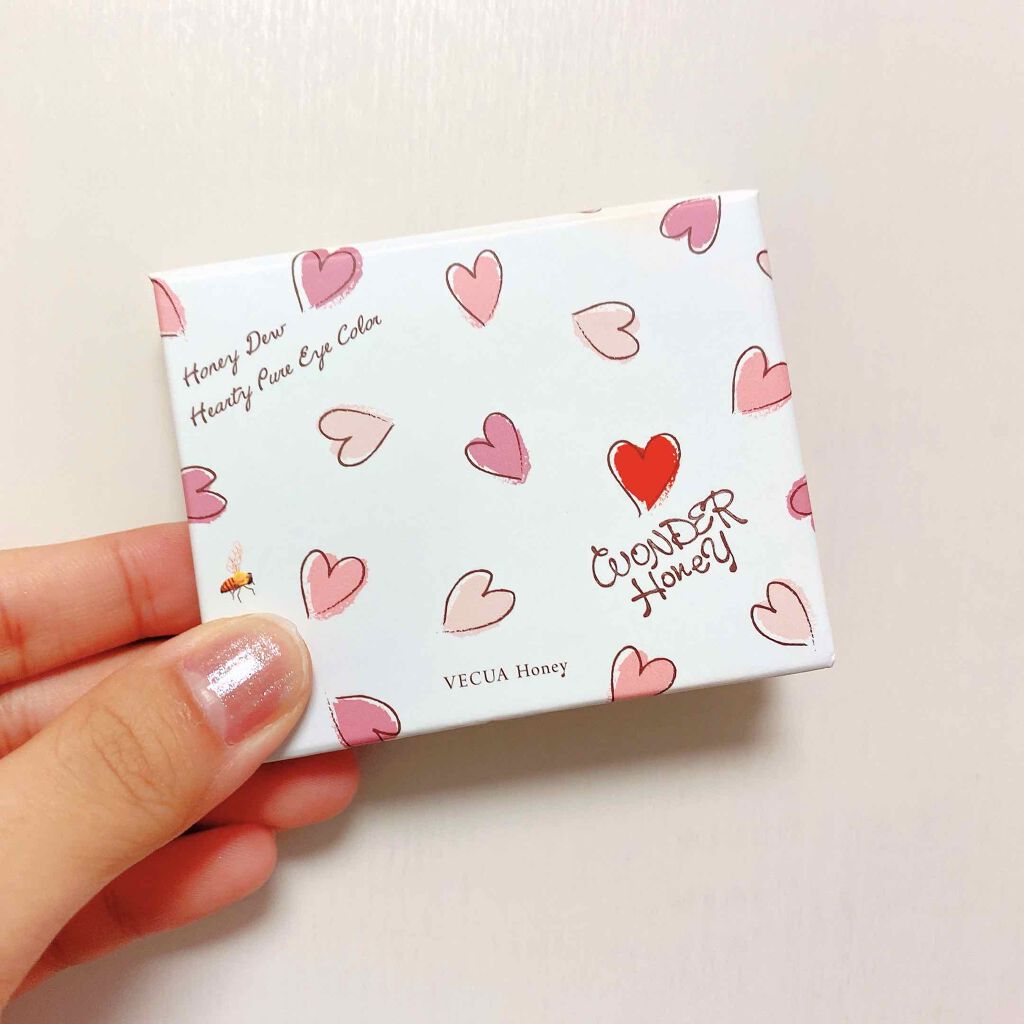 Honey Dew
Hearty Pure Eye Color
WONDER
HoneY
VECUA Honey